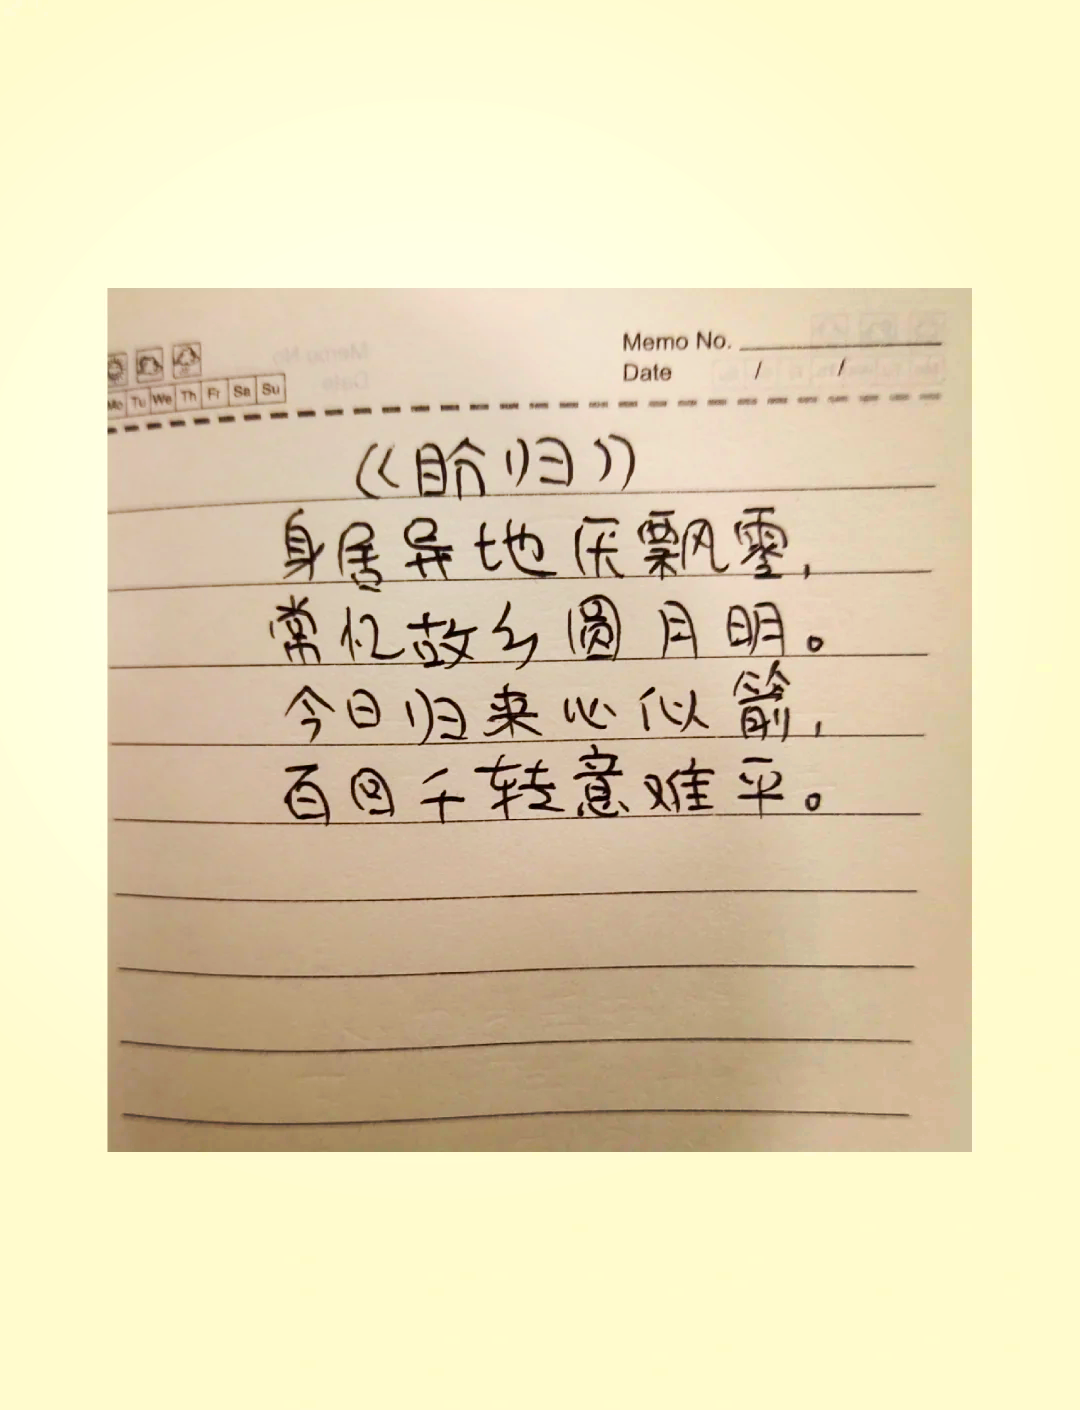 Memo No.
Date / /
Mo Tu We Th Fr Sa Su
《盼归》
身居异地厌飘零,
常忆故乡圆月明。
今日归来心似箭,
百回千转意难平。